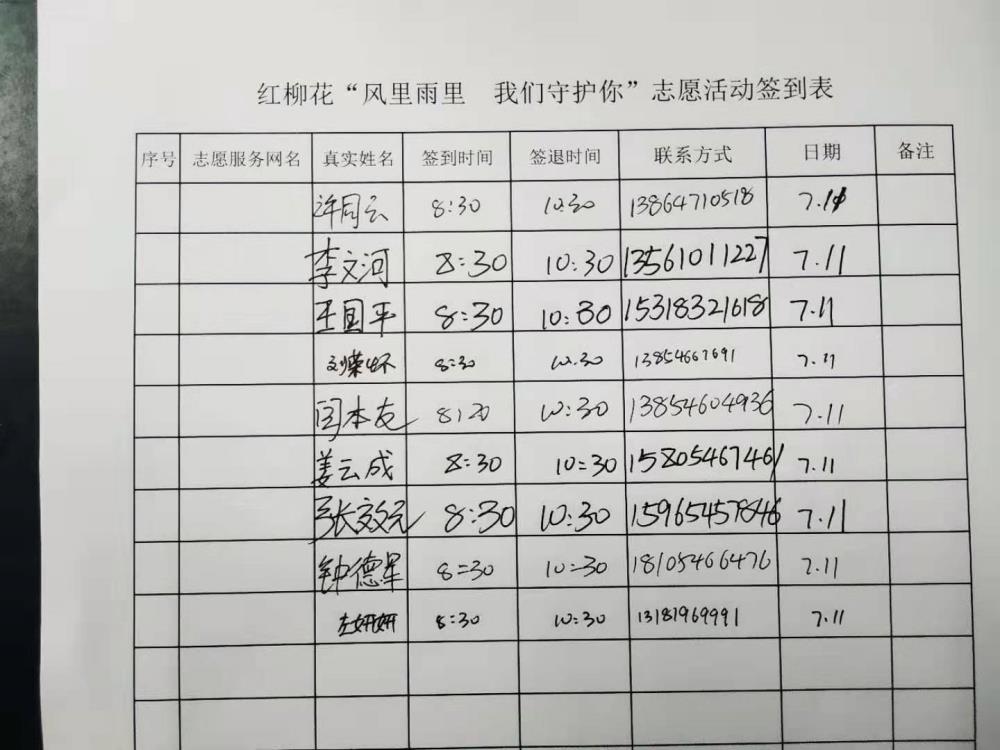 红柳花“风里雨里 我们守护你”志愿活动签到表
序号 志愿服务网名 真实姓名 签到时间 签退时间 联系方式 日期 备注
许同云 8:30 10:30 13864710518 7.11
李文河 8:30 10:30 13561011227 7.11
王国平 8:30 10:30 15318321618 7.11
刘荣怀 8:30 10:30 13854667691 7.11
闫本友 8:20 10:30 13854604936 7.11
姜云成 8:30 10:30 15805467461 7.11
张效元 8:30 10:30 15965457846 7.11
钟德军 8:30 10:30 18105466476 7.11
8:30 10:30 13181969991 7.11